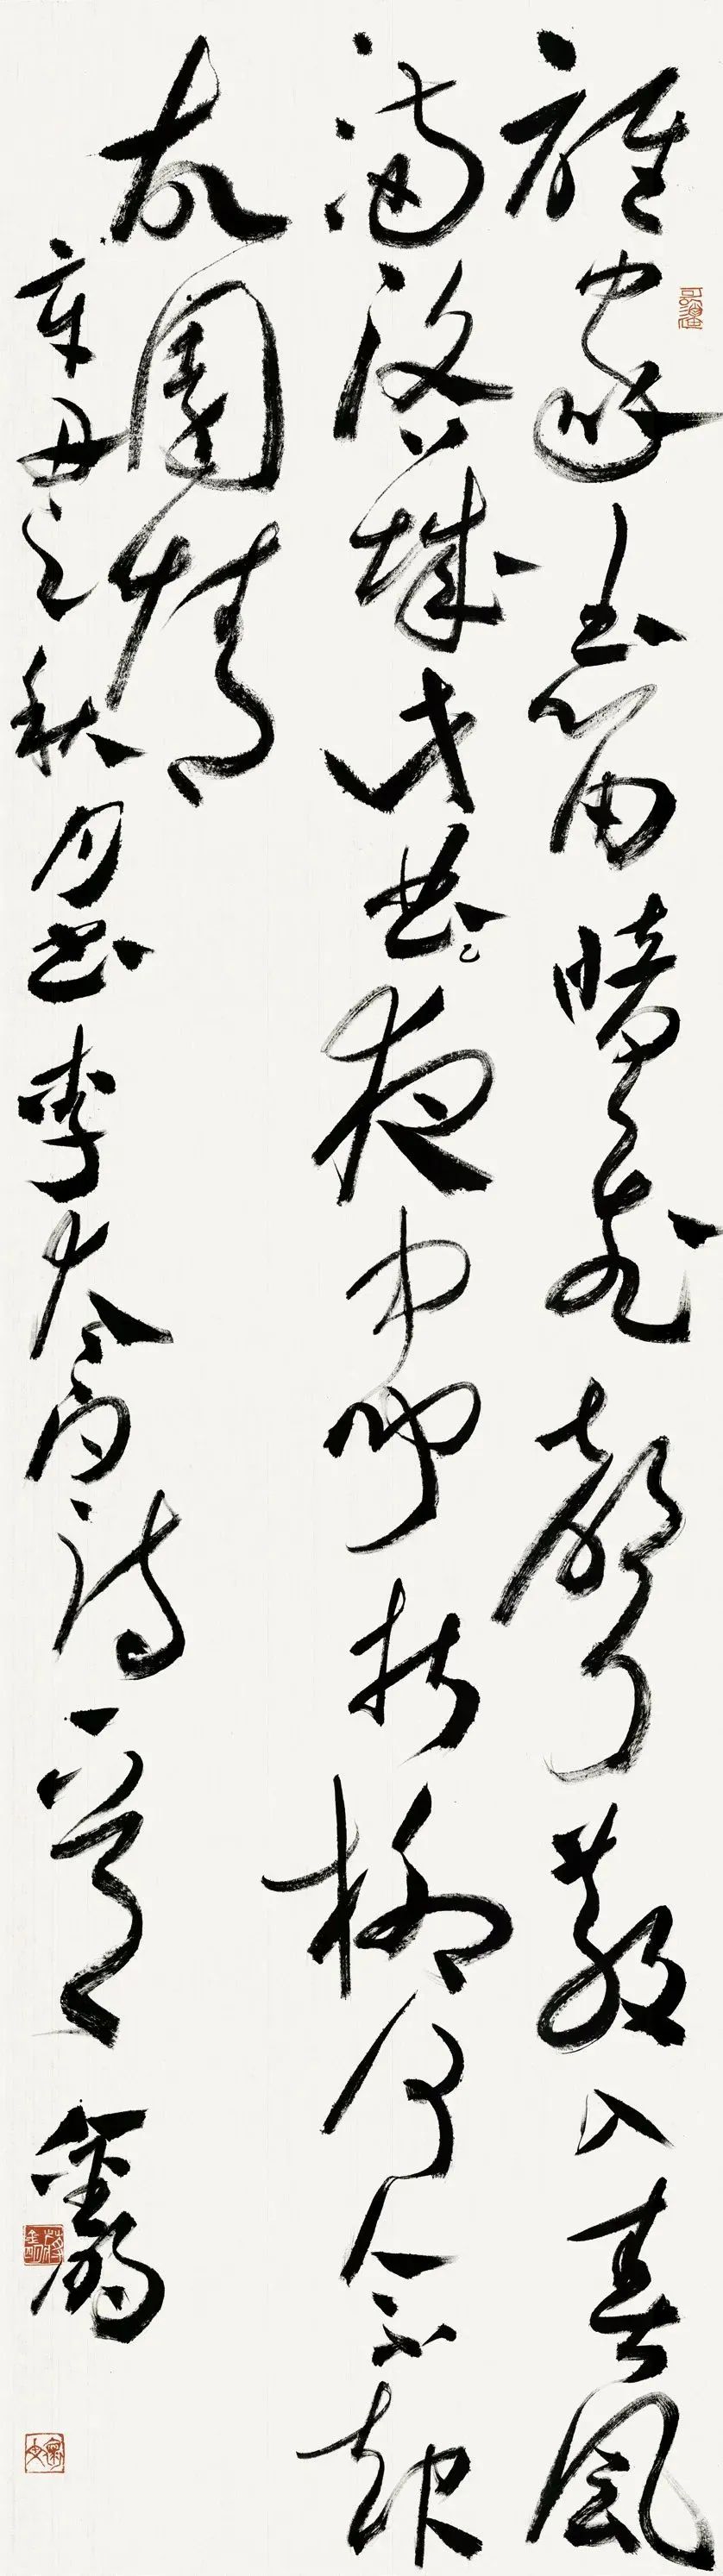 誰家玉笛暗飛聲散入春風
滿洛城此曲夜中聞折柳何人不起
故園情
辛丑之秋月書李太白詩一首